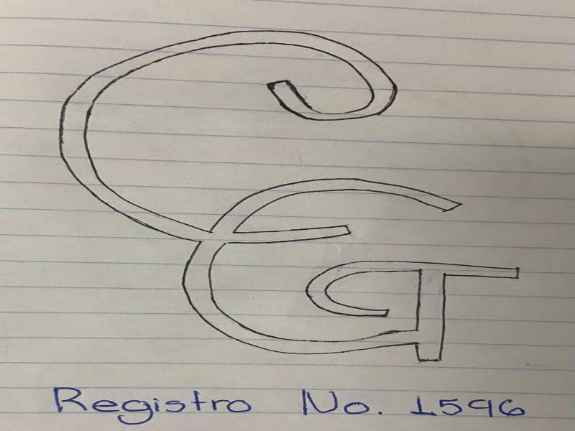 Registro No. 1596